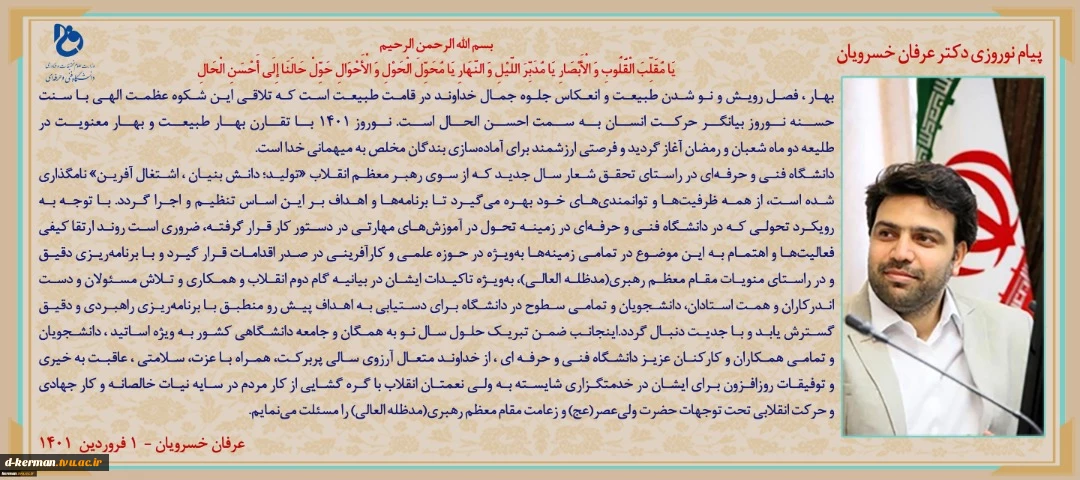 پیام نوروزی دکتر عرفان خسرویان
وزارت علوم، تحقیقات و فناوری
دانشگاه فنی و حرفه‌ای
بسم الله الرحمن الرحیم
یَا مُقَلِّبَ الْقُلُوبِ وَ الْأَبْصَارِ یَا مُدَبِّرَ اللَّیْلِ وَ النَّهَارِ یَا مُحَوِّلَ الْحَوْلِ وَ الْأَحْوَالِ حَوِّلْ حَالَنَا إِلَى أَحْسَنِ الْحَالِ
بهار ، فصل رویش و نو شدن طبیعت و انعکاس جلوه جمال خداوند در قامت طبیعت است که تلاقی این شکوه عظمت الهی با سنت
حسنه نوروز بیانگر حرکت انسان به سمت احسن الحال است. نوروز ۱۴۰۱ با تقارن بهار طبیعت و بهار معنویت در
طلیعه دو ماه شعبان و رمضان آغاز گردید و فرصتی ارزشمند برای آماده‌سازی بندگان مخلص به میهمانی خدا است.
دانشگاه فنی و حرفه‌ای در راستای تحقق شعار سال جدید که از سوی رهبر معظم انقلاب «تولید؛ دانش بنیان ، اشتغال آفرین» نامگذاری
شده است، از همه ظرفیت‌ها و توانمندی‌های خود بهره می‌گیرد تا برنامه‌ها و اهداف بر این اساس تنظیم و اجرا گردد. با توجه به
رویکرد تحولی که در دانشگاه فنی و حرفه‌ای در زمینه تحول در آموزش‌های مهارتی در دستور کار قرار گرفته، ضروری است روند ارتقا کیفی
فعالیت‌ها و اهتمام به این موضوع در تمامی زمینه‌ها به‌ویژه در حوزه علمی و کارآفرینی در صدر اقدامات قرار گیرد و با برنامه‌ریزی دقیق
و در راستای منویات مقام معظم رهبری(مدظله العالی)، به‌ویژه تاکیدات ایشان در بیانیه گام دوم انقلاب و همکاری و تلاش مسئولان و دست
اندرکاران و همت استادان، دانشجویان و تمامی سطوح در دانشگاه برای دستیابی به اهداف پیش رو منطبق با برنامه‌ریزی راهبردی و دقیق
گسترش یابد و با جدیت دنبال گردد.اینجانب ضمن تبریک حلول سال نو به همگان و جامعه دانشگاهی کشور به ویژه اساتید ، دانشجویان
و تمامی همکاران و کارکنان عزیز دانشگاه فنی و حرفه ای ، از خداوند متعال آرزوی سالی پربرکت، همراه با عزت، سلامتی ، عاقبت به خیری
و توفیقات روزافزون برای ایشان در خدمتگزاری شایسته به ولی نعمتان انقلاب با گره گشایی از کار مردم در سایه نیات خالصانه و کار جهادی
و حرکت انقلابی تحت توجهات حضرت ولی‌عصر(عج) و زعامت مقام معظم رهبری(مدظله العالی) را مسئلت می‌نمایم.
عرفان خسرویان - ۱ فروردین ۱۴۰۱
d-kerman.tvu.ac.ir
kerman.tvu.ac.ir